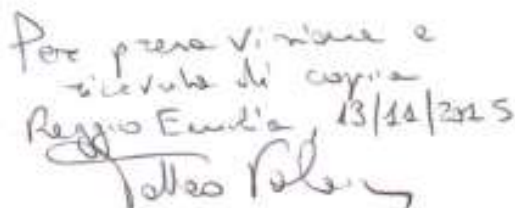 Per presa visione e
ricevuta di copia
Reggio Emilia, 13/11/2015